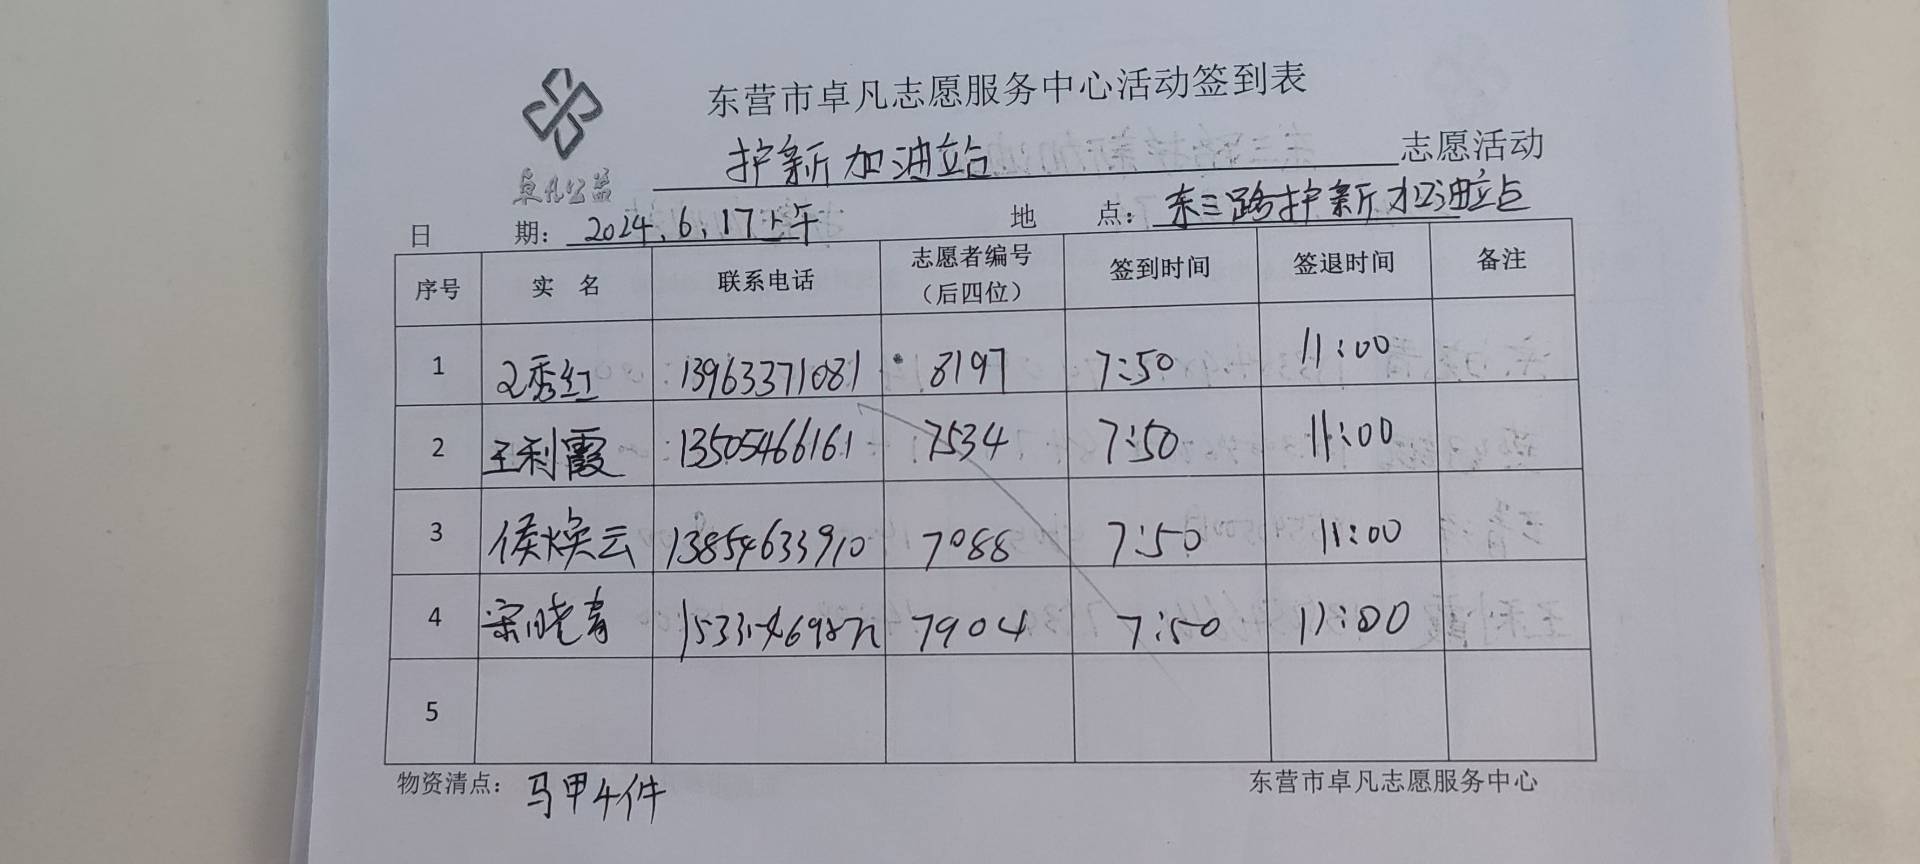 东营市卓凡志愿服务中心活动签到表
卓凡公益
护新加油站 志愿活动
日 期: 2024.6.17上午 地 点: 东三路护新加油站点
序号 实 名 联系电话 志愿者编号（后四位） 签到时间 签退时间 备注
1 秀红 13963371081 8197 7:50 11:00
2 王利霞 13505466161 7534 7:50 11:00
3 侯焕云 13854633910 7088 7:50 11:00
4 宋晓青 7904 7:50 11:00
5
物资清点: 马甲4件 东营市卓凡志愿服务中心